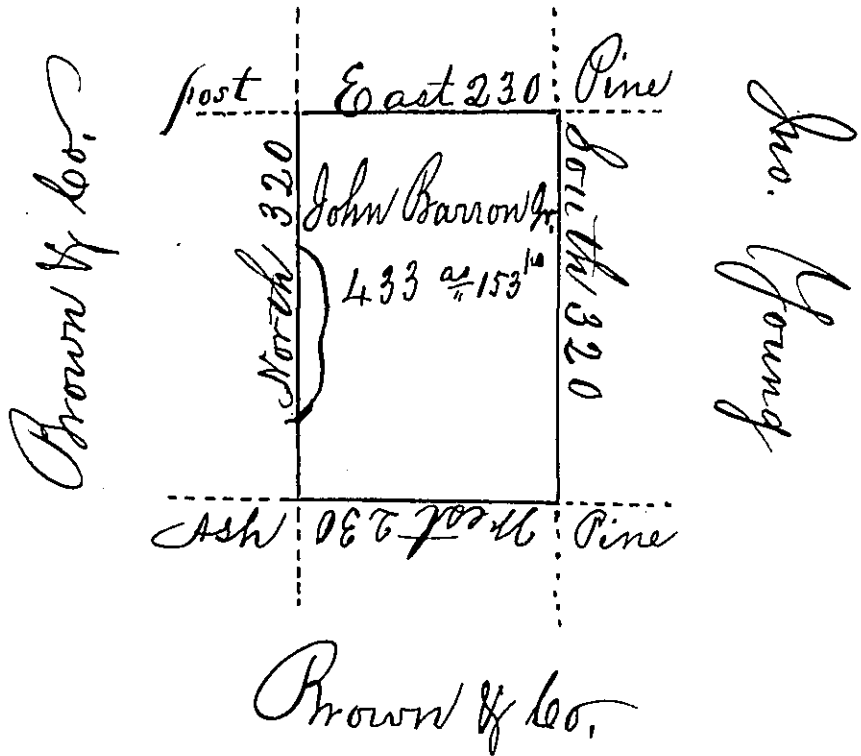 post
East 230
Pine
Brown & Co.
North 320
John Barron Jr.
433 as 153
South 320
Jno. Young
Ash
West 230
Pine
Brown & Co.